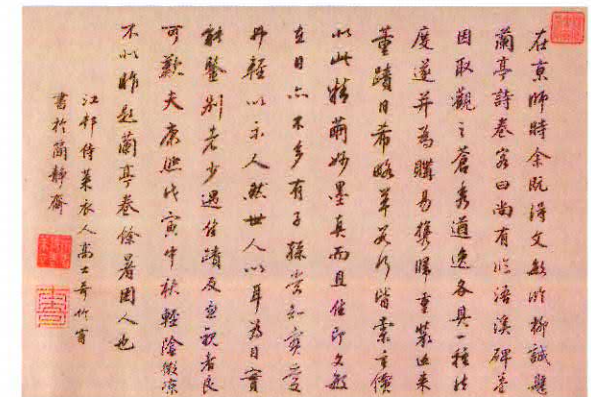 在京師時余既得文敏臨柳誠懸
蘭亭詩卷客曰尚有臨浯溪碑
因取觀之蒼秀遒逸各具一種法
度遂并為購易攜歸重裝近來
董蹟日希略草數行皆索重價
以此精繭妙墨真而且佳即文敏
在日亦不多有子孫當知寶愛
毋輕以示人然世人以耳為目實
能鑒別者少遇佳蹟反忽視者良
可歎夫康熙戊寅中秋輕陰微凉
不似昨題蘭亭卷餘暑困人也
江邨侍萊衣人高士奇竹窗
書於簡靜齋